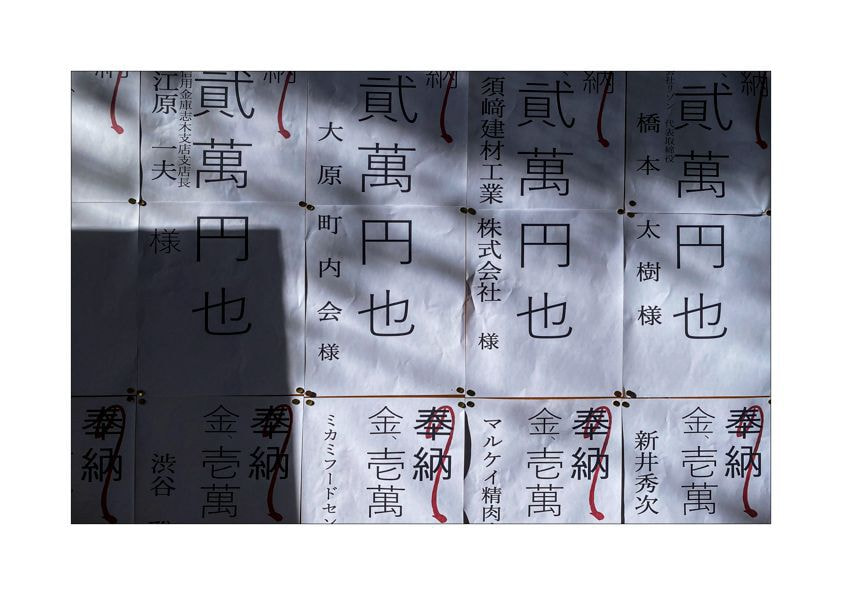 納
橋本太樹様
会社リンソン 代表取締役
納
貳萬円也
須﨑建材工業株式会社様
納
貳萬円也
大原町内会様
納
貳萬円也
信用金庫志木支店支店長
江原一夫様
納
奉納
金、壱萬
新井秀次
奉納
金、壱萬
マルケイ精肉
奉納
金、壱萬
ミカミフードセン
奉納
金、壱萬
渋谷
奉納